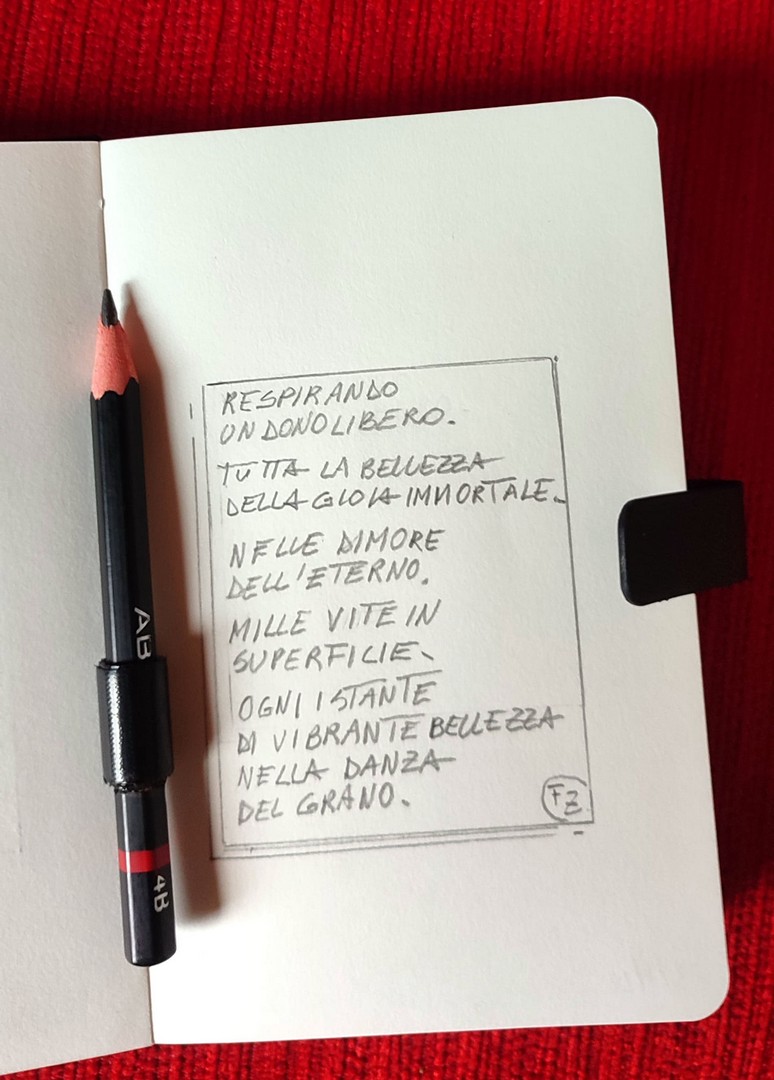 RESPIRANDO
UN DONO LIBERO.
TUTTA LA BELLEZZA
DELLA GIOIA IMMORTALE.
NELLE DIMORE
DELL'ETERNO.
MILLE VITE IN
SUPERFICIE.
OGNI ISTANTE
DI VIBRANTE BELLEZZA
NELLA DANZA
DEL GRANO.
FZ
AB
4B